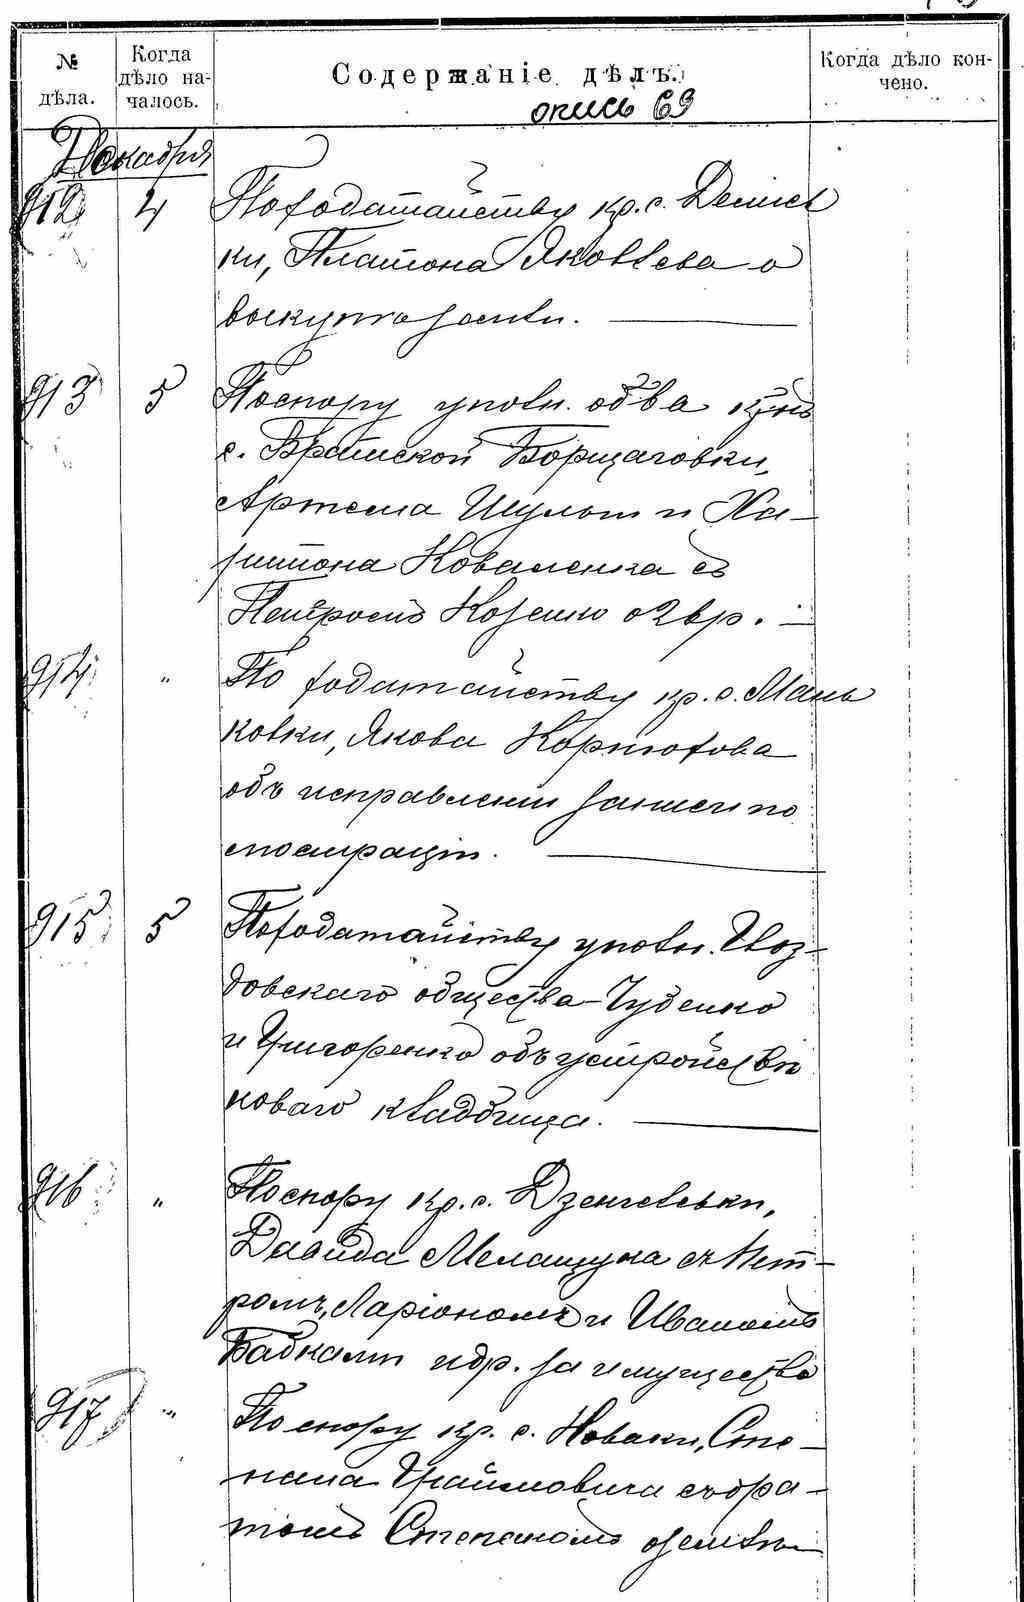 № дѣла.
Когда дѣло на-
чалось.
Содержаніе дѣлъ.
Когда дѣло кон-
чено.
опись 69
Декабря
912 4 По ходатайству кр. с. Демиев
ки, Платона Яковлева о
выкупѣ земли.
913 5 По спору уполн. об-ва кр-нъ
с. Братской Борщаговки,
Артема Шульги и Ха-
ритона Коваленка съ
Петромъ Козенко о 2 др.
914 " По ходатайству кр. с. Мань
ковки, Якова Корнюхова
объ исправленіи записи по
люстраціи.
915 5 По ходатайству уполн. Гвоз-
довскаго общества - Чубенко
и Григоренко объ устройствѣ
новаго кладбища.
916 " По спору кр. с. Дзенгелевки,
Давида Мелащука съ Пет-
ромъ, Ларіономъ и Иваномъ
Бабками и др. за имущество
917 " По спору кр. с. Новаки, Сте-
пана съ бра-
томъ Степаномъ о землѣ